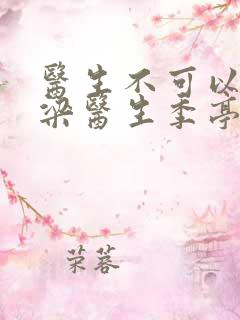 醫生不可以
梁醫生季亭
荣蓉